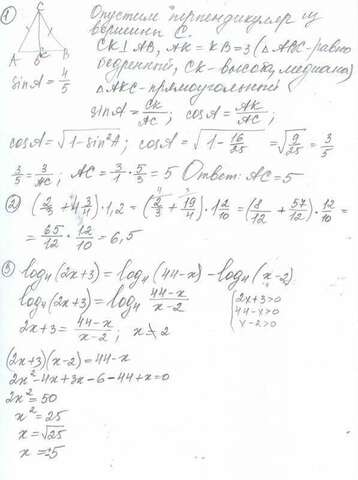 ① C Опустим перпендикуляр из
вершины C.
CK⊥AB, AK = KB = 3 (△ABC - равно
бедренный, CK - высота, медиана)
△AKC - прямоугольный
A B
K
sinA = 4/5
sinA = CK/AC; cosA = AK/AC;
cosA = √(1-sin²A); cosA = √(1 - 16/25) = √(9/25) = 3/5
3/5 = 3/AC; AC = 3/1 · 5/3 = 5 Ответ: AC = 5
② (2/3 + 4 3/4) · 1,2 = (2/3 + 19/4) · 12/10 = (8/12 + 57/12) · 12/10 =
= 65/12 · 12/10 = 6,5
③ log₄(2x+3) = log₄(44-x) - log₄(x-2)
log₄(2x+3) = log₄ (44-x)/(x-2)
2x+3>0
44-x>0
x-2>0
2x+3 = (44-x)/(x-2); x ≠ 2
(2x+3)(x-2) = 44-x
2x² - 4x + 3x - 6 - 44 + x = 0
2x² = 50
x² = 25
x = √25
x = 5